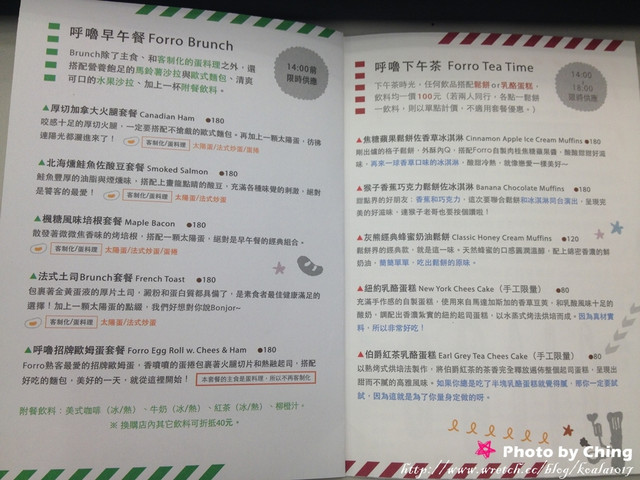 呼嚕早午餐 Forro Brunch
Brunch除了主食、和客制化的蛋料理之外，還
搭配營養飽足的馬鈴薯沙拉與歐式麵包、清爽
可口的水果沙拉、加上一杯附餐飲料。
14:00前
限時供應
▲厚切加拿大火腿套餐 Canadian Ham ●180
咬感十足的厚切火腿，一定要搭配不搶戲的歐式麵包。再加上一顆太陽蛋，彷彿
連陽光都灑進來了！ 客制化/蛋料理 太陽蛋/法式炒蛋/蛋捲
▲北海燻鮭魚佐酸豆套餐 Smoked Salmon ●180
鮭魚豐厚的油脂與煙燻味，搭配上畫龍點睛的酸豆，充滿各種味覺的刺激，絕對
是饕客的最愛！ 客制化/蛋料理 太陽蛋/法式炒蛋
▲楓糖風味培根套餐 Maple Bacon ●180
散發著微微焦香味的烤培根，搭配一顆太陽蛋，絕對是早午餐的經典組合。
客制化/蛋料理 太陽蛋/法式炒蛋/蛋捲
▲法式土司Brunch套餐 French Toast ●180
包裹著金黃蛋液的厚片土司，澱粉和蛋白質都具備了，是素食者最佳健康滿足的
選擇！加上一顆太陽蛋的點綴，我們好想對你說Bonjor~
客制化/蛋料理 太陽蛋/法式炒蛋
▲呼嚕招牌歐姆蛋套餐 Forro Egg Roll w. Chees & Ham ●180
Forro熟客最愛的招牌歐姆蛋，香噴噴的蛋捲包裹著火腿切片和熱融起司，搭配
好吃的麵包，美好的一天，就從這裡開始！ 本套餐的主食是蛋料理，所以不再客制化
附餐飲料：美式咖啡（冰/熱）、牛奶（冰/熱）、紅茶（冰/熱）、柳橙汁。
※ 換購店內其它飲料可折抵40元。
呼嚕下午茶 Forro Tea Time
下午茶時光，任何飲品搭配鬆餅or乳酪蛋糕，
飲料均一價100元（若兩人同行，各點一鬆餅
一飲料，則以單點計價，不適用套餐優惠。）
14:00
18:00
限時供應
▲焦糖蘋果鬆餅佐香草冰淇淋 Cinnamon Apple Ice Cream Muffins ●180
剛出爐的格子鬆餅，外酥內Q，搭配Forro自製肉桂焦糖蘋果醬，酸酸甜甜好滋
味，再來一球香草口味的冰淇淋，酸甜冷熱，就像戀愛一樣美好~
▲猴子香蕉巧克力鬆餅佐冰淇淋 Banana Chocolate Muffins ●180
甜點界的好朋友：香蕉和巧克力，這次要聯合鬆餅和冰淇淋同台演出，呈現完
美的好滋味，連猴子老爺也要按個讚啦！
▲灰熊經典蜂蜜奶油鬆餅 Classic Honey Cream Muffins ●120
鬆餅界的經典款，就是這一味。天然蜂蜜的口感圓潤溫醇，配上綿密香濃的鮮
奶油，簡簡單單，吃出鬆餅的原味。
▲紐約乳酪蛋糕 New York Chees Cake（手工限量） ●80
充滿手作感的自製蛋糕，使用來自馬達加斯加的香草豆莢，和乳酸風味十足的
酸奶，調配出香濃紮實的紐約起司蛋糕，以水蒸式烤法烘焙而成。因為真材實
料，所以非常好吃！
▲伯爵紅茶乳酪蛋糕 Earl Grey Tea Chees Cake（手工限量） ●80
以熟烤式烘焙法製作，將伯爵紅茶的茶香完全釋放過佈整個起司蛋糕，呈現出
甜而不膩的高雅風味。如果你總是吃了半塊乳酪蛋糕就覺得膩，那你一定要試
試，因為這就是為了你量身定做的呀。
Photo by Ching
http://www.wretch.cc/blog/koala1017